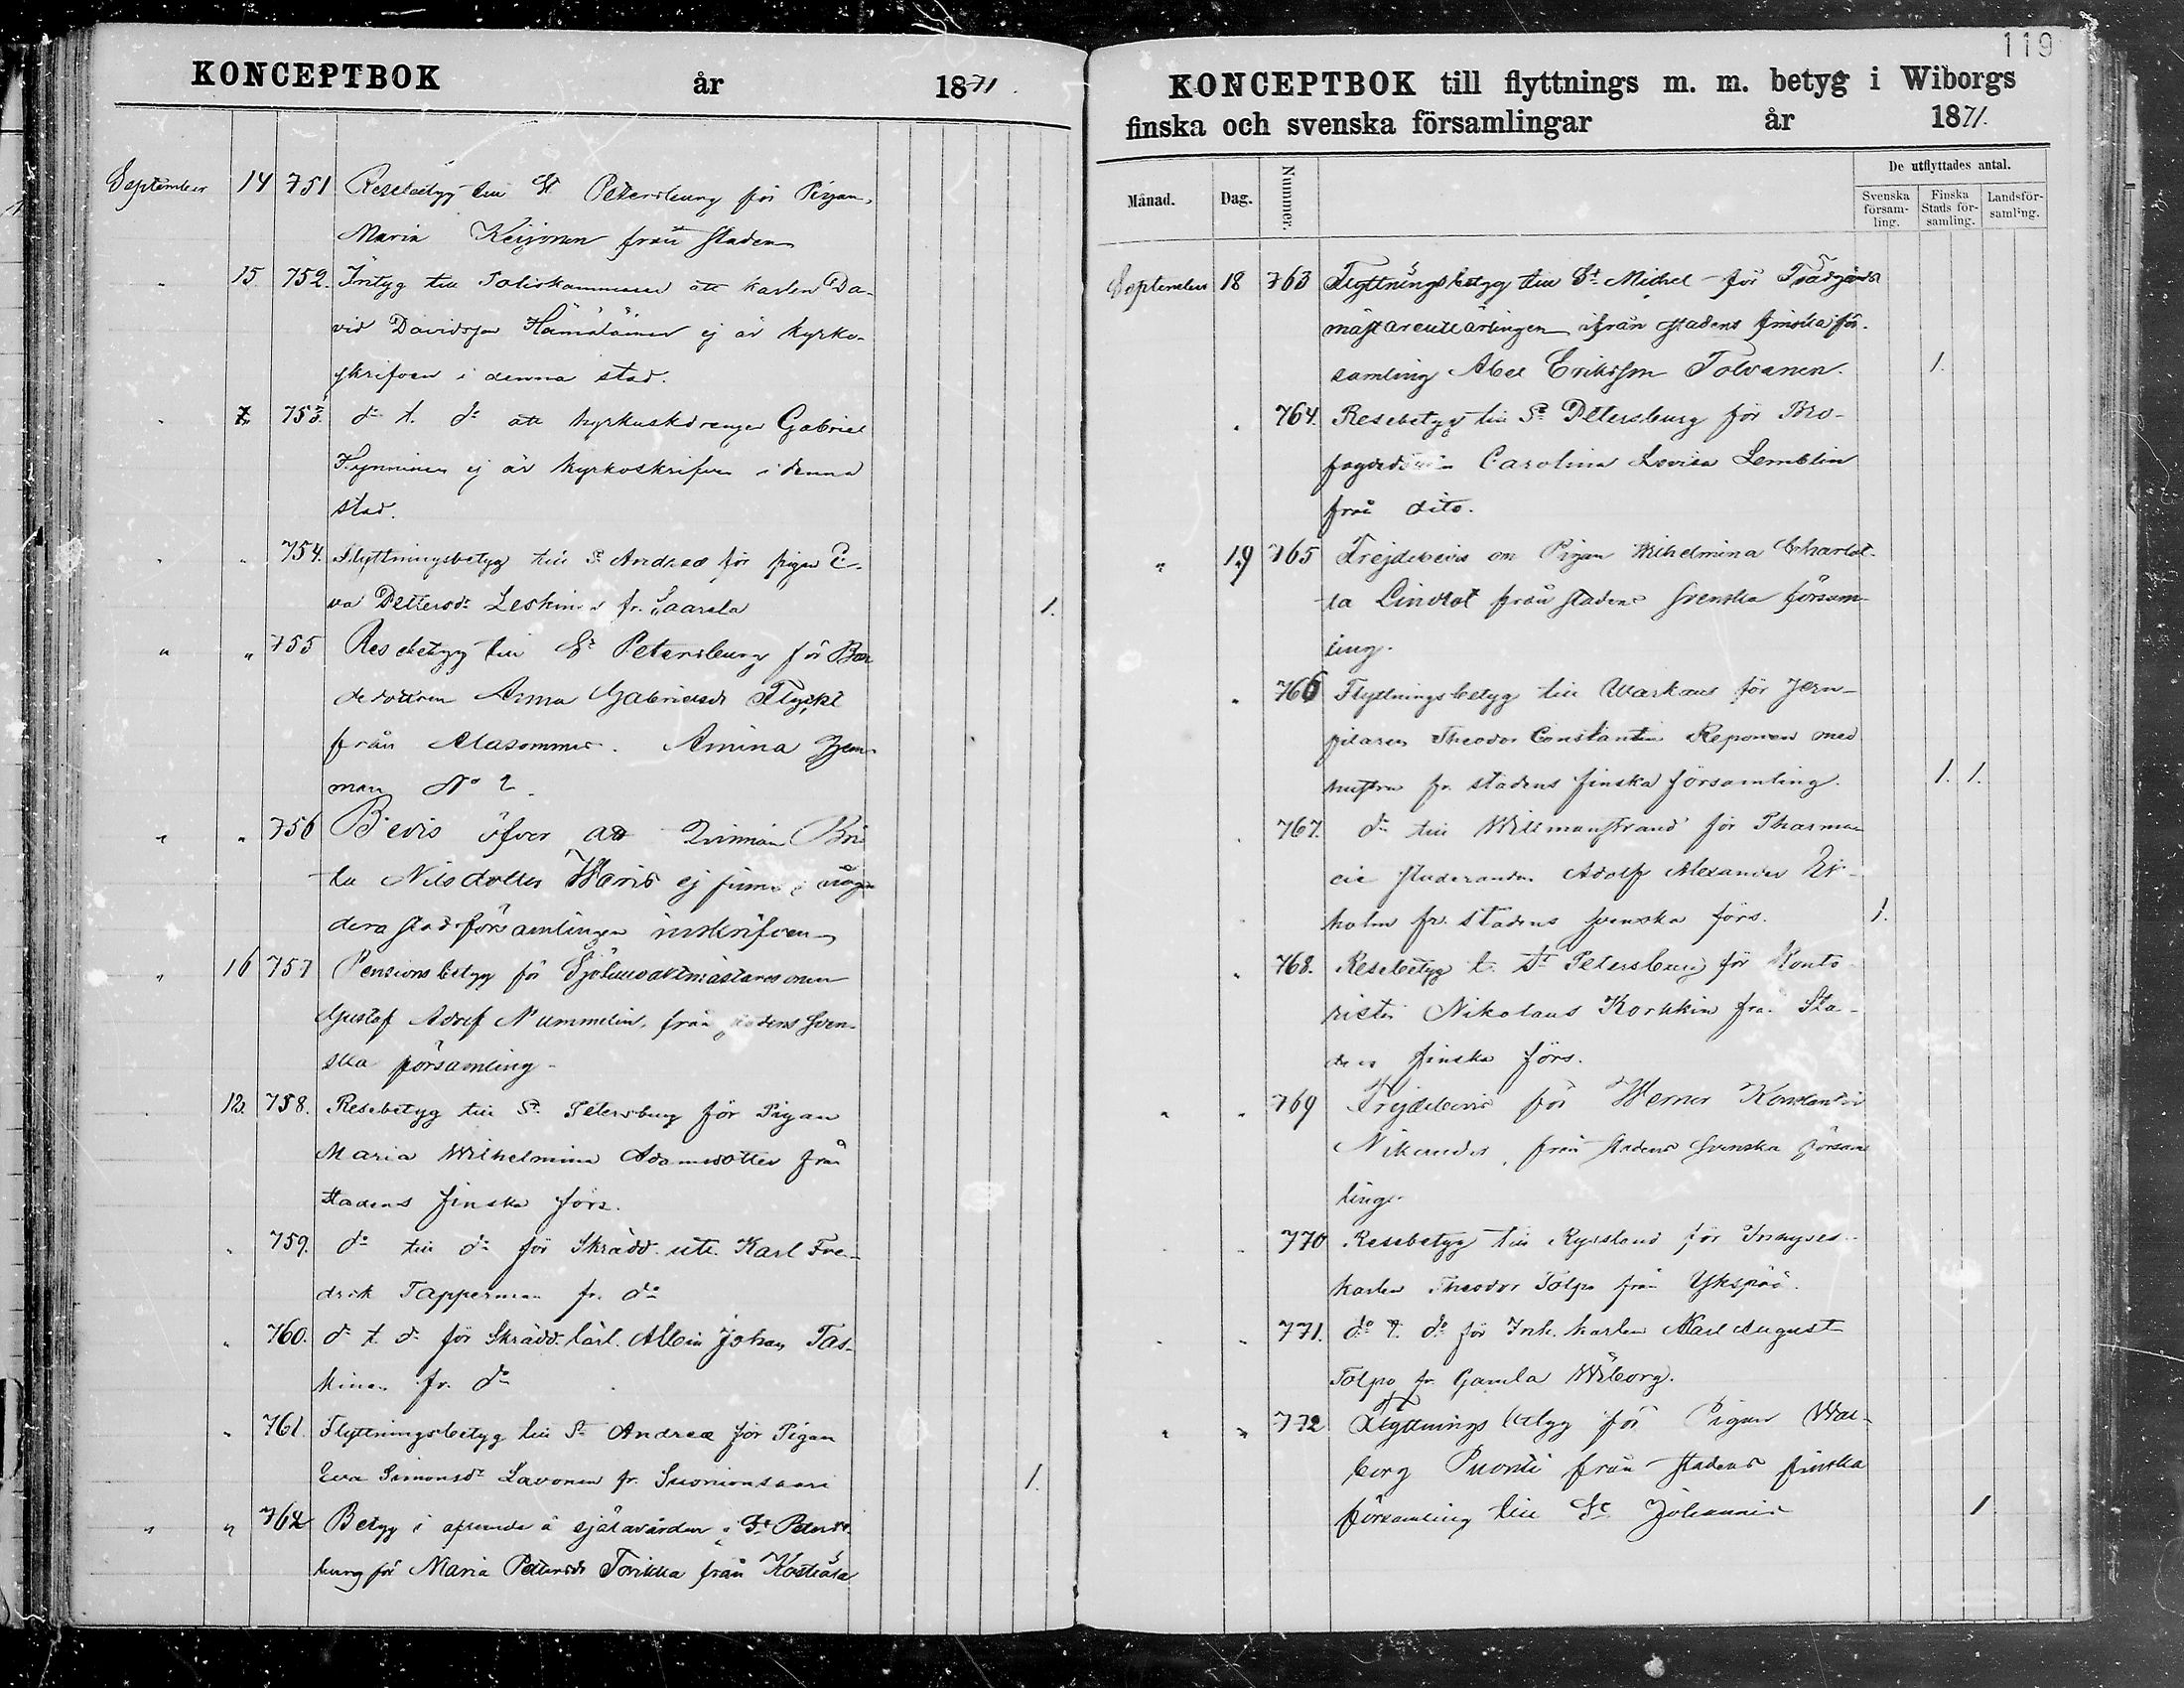 KONCEPTBOK år 1871.
September 14 751 Resebetyg till St Petersburg för Pigan,
Maria Keijonen från staden
" 15 752. Intyg till Poliskammaren att karlen Da-
vid Davidsson Hämäläinen ej är kyrko-
skrifven i denna stad.
" 753. do t. do att kyrkuskdrengen Gabriel
Hynninen ej är kyrkoskrifven i denna
stad.
" " 754. Flyttningsbetyg till St Andreæ för pigan E-
va Pettersdr Leskinen fr. Saarela 1.
" " 755 Resebetyg till St Petersburg för Bon
dedottren Anna Gabrielsdr Flyckt
från Alasommee.
man No 2.
" " 756 Bevis öfver att Qvinnan Bri-
ta Nilsdotter Waris ej finnes i någon
dera stadsförsamlingen inskrifven
" 16 757 Pensionsbetyg för
Gustaf Adolf Nummelin, från stadens Sven-
ska församling.
758. Resebetyg till St Petersburg för Pigan
Maria Wilhelmina Adamsdotter från
stadens finska förs.
" 759. do till do för Skrädd. utl. Karl Fre-
drik Tapperman fr. do
" 760. do t. do för Skrädd. lärl. Albin Johan Tas-
kinen fr. do
" 761. Flyttningsbetyg till St Andreæ för Pigan
Eva Simonsdr Lavonen fr. Suonionsaari 1.
" " 762 Betyg i afseende å själavården i St Peters-
burg för Maria Pettersdr Torikka från Kostiala
119
KONCEPTBOK till flyttnings m. m. betyg i Wiborgs
finska och svenska församlingar år 1871.
De utflyttades antal.
Månad. Dag. Nummer. Svenska försam-ling. Finska Stads för-samling. Landsför-samling.
September 18 763 Flyttningsbetyg till St. Michel för Trädgårds
mästareutlärlingen ifrån stadens finska för-
samling Abel Eriksson Tolvanen. 1.
" 764. Resebetyg till St Petersburg för Bro-
fogdedottren Carolina Lovisa Lemblin
från dito.
" 19 765 Frejdebevis om Pigan Wilhelmina Charlot-
ta Lindlöf från stadens Svenska försam-
ling.
" 766 Flyttningsbetyg till Warkaus för Jern-
filaren Theodor Constantin Reponen med
hustru fr. stadens finska församling. 1. 1.
" 767. do till Willmanstrand för Pharma-
cie studeranden Adolf Alexander Ek-
holm fr. stadens svenska förs. 1.
" 768. Resebetyg t. St Petersburg för Konto-
risten Nikolaus Korkkin från Sta-
dens finska förs.
" " 769 Frejdebevis för Werner Konstantin
Nikander, från stadens Svenska försam
ling.
" 770 Resebetyg till Ryssland för Inhyses-
karlen Theodor Tolpo från Ykspää.
" " 771. do t. do för Inh. karlen Karl August
Tolpo fr. Gamla Wiborg.
" " 772 Flyttnings betyg för Pigan Wal-
borg Puonti från stadens finska
församling till St Johannis 1.